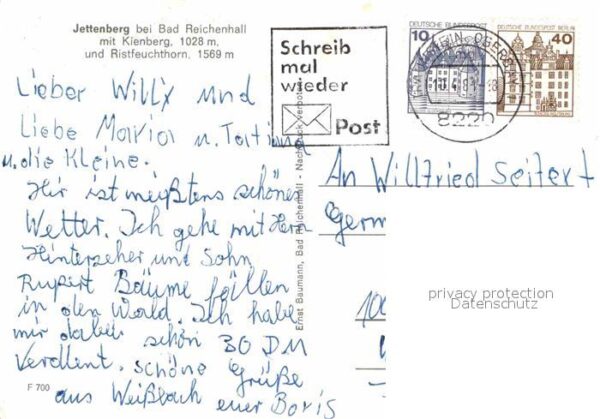 Jettenberg bei Bad Reichenhall
mit Kienberg, 1028 m,
und Ristfeuchthorn, 1569 m
Lieber Willy und
Liebe Maria u. Tatjana
u. die Kleine.
Hir ist meißtens schönes
Wetter. Ich gehe mit Herr
Hinterseher und Sohn
Rupert Bäume fällen
in den Wald. Ich habe
mir dabei schön 30 DM
Verdient. schöne Grüße
aus Weißbach euer Boris
F 700
Ernst Baumann, Bad Reichenhall - Nachdruck verboten
Schreib
mal
wieder
Post
DEUTSCHE BUNDESPOST
10
DEUTSCHE BUNDESPOST BERLIN
40
8220
An Willfried Seifert
Germ
100
privacy protection
Datenschutz